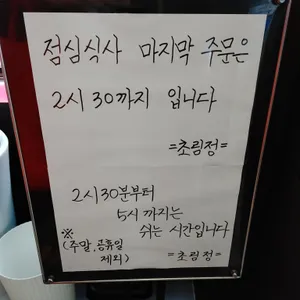 점심식사 마지막 주문은
2시 30까지 입니다
=초림정=
2시30분부터
5시 까지는
※ 쉬는 시간입니다
(주말, 공휴일
제외) =초림정=